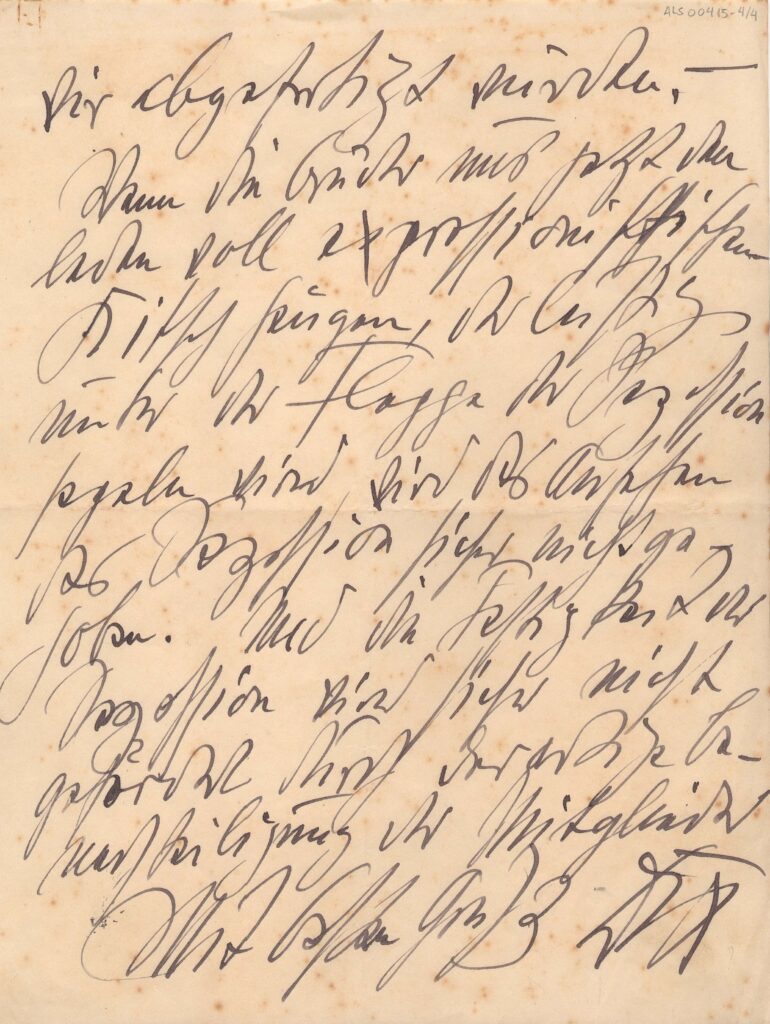 ALS00415-4/4
wir abgefertigt würden. —
Wenn die Brücke uns jetzt den
laden voll expressionistischen
Kitsch hängen, der lustig
unter der Flagge der Sezession
segeln wird, wird das Ansehen
der Sezession sicher nicht ge-
hoben. Und die Festigkeit der
Sezession wird sicher nicht
gefördert durch derartige Be-
nachteiligung der Mitglieder
Mit besten Gruß